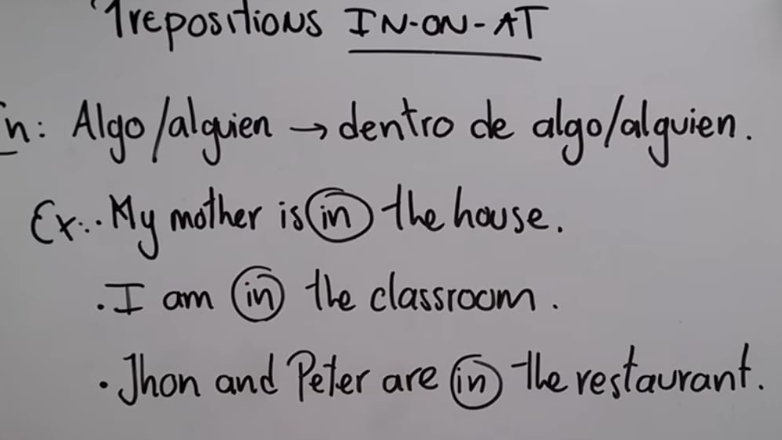 Prepositions IN-ON-AT
In: Algo/alguien → dentro de algo/alguien.
Ex:. My mother is in the house.
. I am in the classroom.
. Jhon and Peter are in the restaurant.